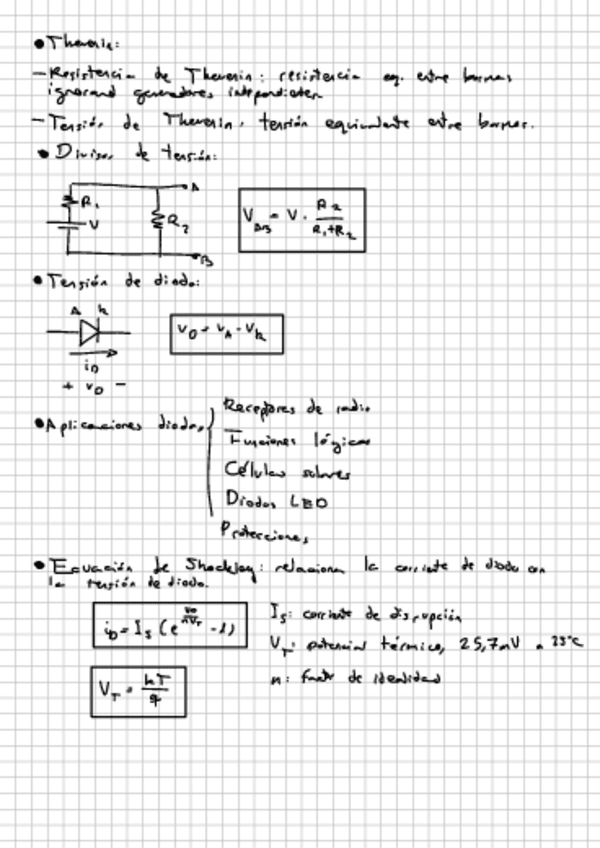 • Thevenin:
– Resistencia de Thevenin: resistencia eq. entre bornas
ignorand generadores independientes
– Tensión de Thevenin: tensión equivalente entre bornas.
• Divisor de tensión:
A
R₁
V
R₂
B
V_AB = V · R₂/(R₁+R₂)
• Tensión de diodo:
A k
i_D
+ v_D –
v_D = v_A - v_k
• Aplicaciones diodos
Receptores de radio
Funciones lógicas
Células solares
Diodos LED
Protecciones
• Ecuación de Shockley: relaciona la corriente de diodo con
la tensión de diodo.
i_D = I_s (e^(v_D/nV_T) - 1)
I_s: corriente de disrupción
V_T: potencial térmico, 25,7mV a 25°C
n: factor de idealidad
V_T = kT/q